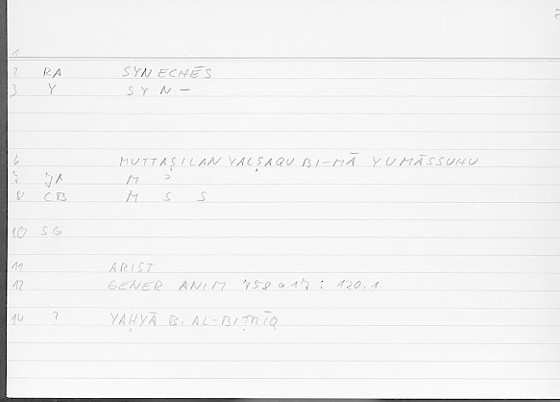 1
2 RA SYNECHĒS
3 Y SYN-
6 MUTTAṢILAN YALṢAQU BI-MĀ YUMĀSSUHU
7 JA M ?
8 CB M S S
10 SG
11 ARIST
12 GENER ANIM 758a17: 120.1
14 ? YAḤYĀ B. AL-BIṬRĪQ